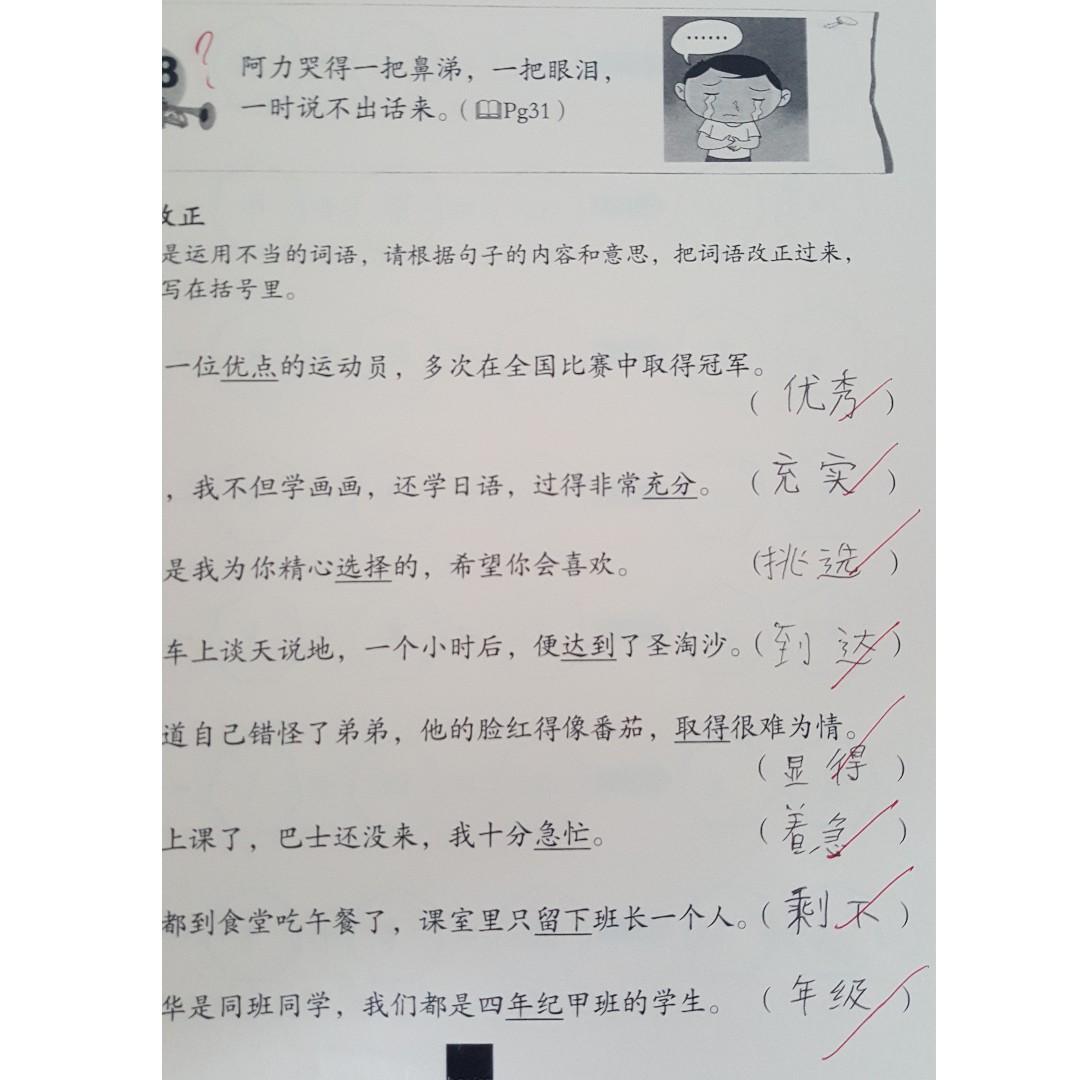 8 ?
阿力哭得一把鼻涕，一把眼泪，
一时说不出话来。（Pg31）
……
改正
是运用不当的词语，请根据句子的内容和意思，把词语改正过来，
写在括号里。
一位优点的运动员，多次在全国比赛中取得冠军。
（ 优秀 ）
，我不但学画画，还学日语，过得非常充分。（ 充实 ）
是我为你精心选择的，希望你会喜欢。（ 挑选 ）
车上谈天说地，一个小时后，便达到了圣淘沙。（ 到达 ）
道自己错怪了弟弟，他的脸红得像番茄，取得很难为情。
（ 显得 ）
上课了，巴士还没来，我十分急忙。（ 着急 ）
都到食堂吃午餐了，课室里只留下班长一个人。（ 剩下 ）
华是同班同学，我们都是四年纪甲班的学生。（ 年级 ）